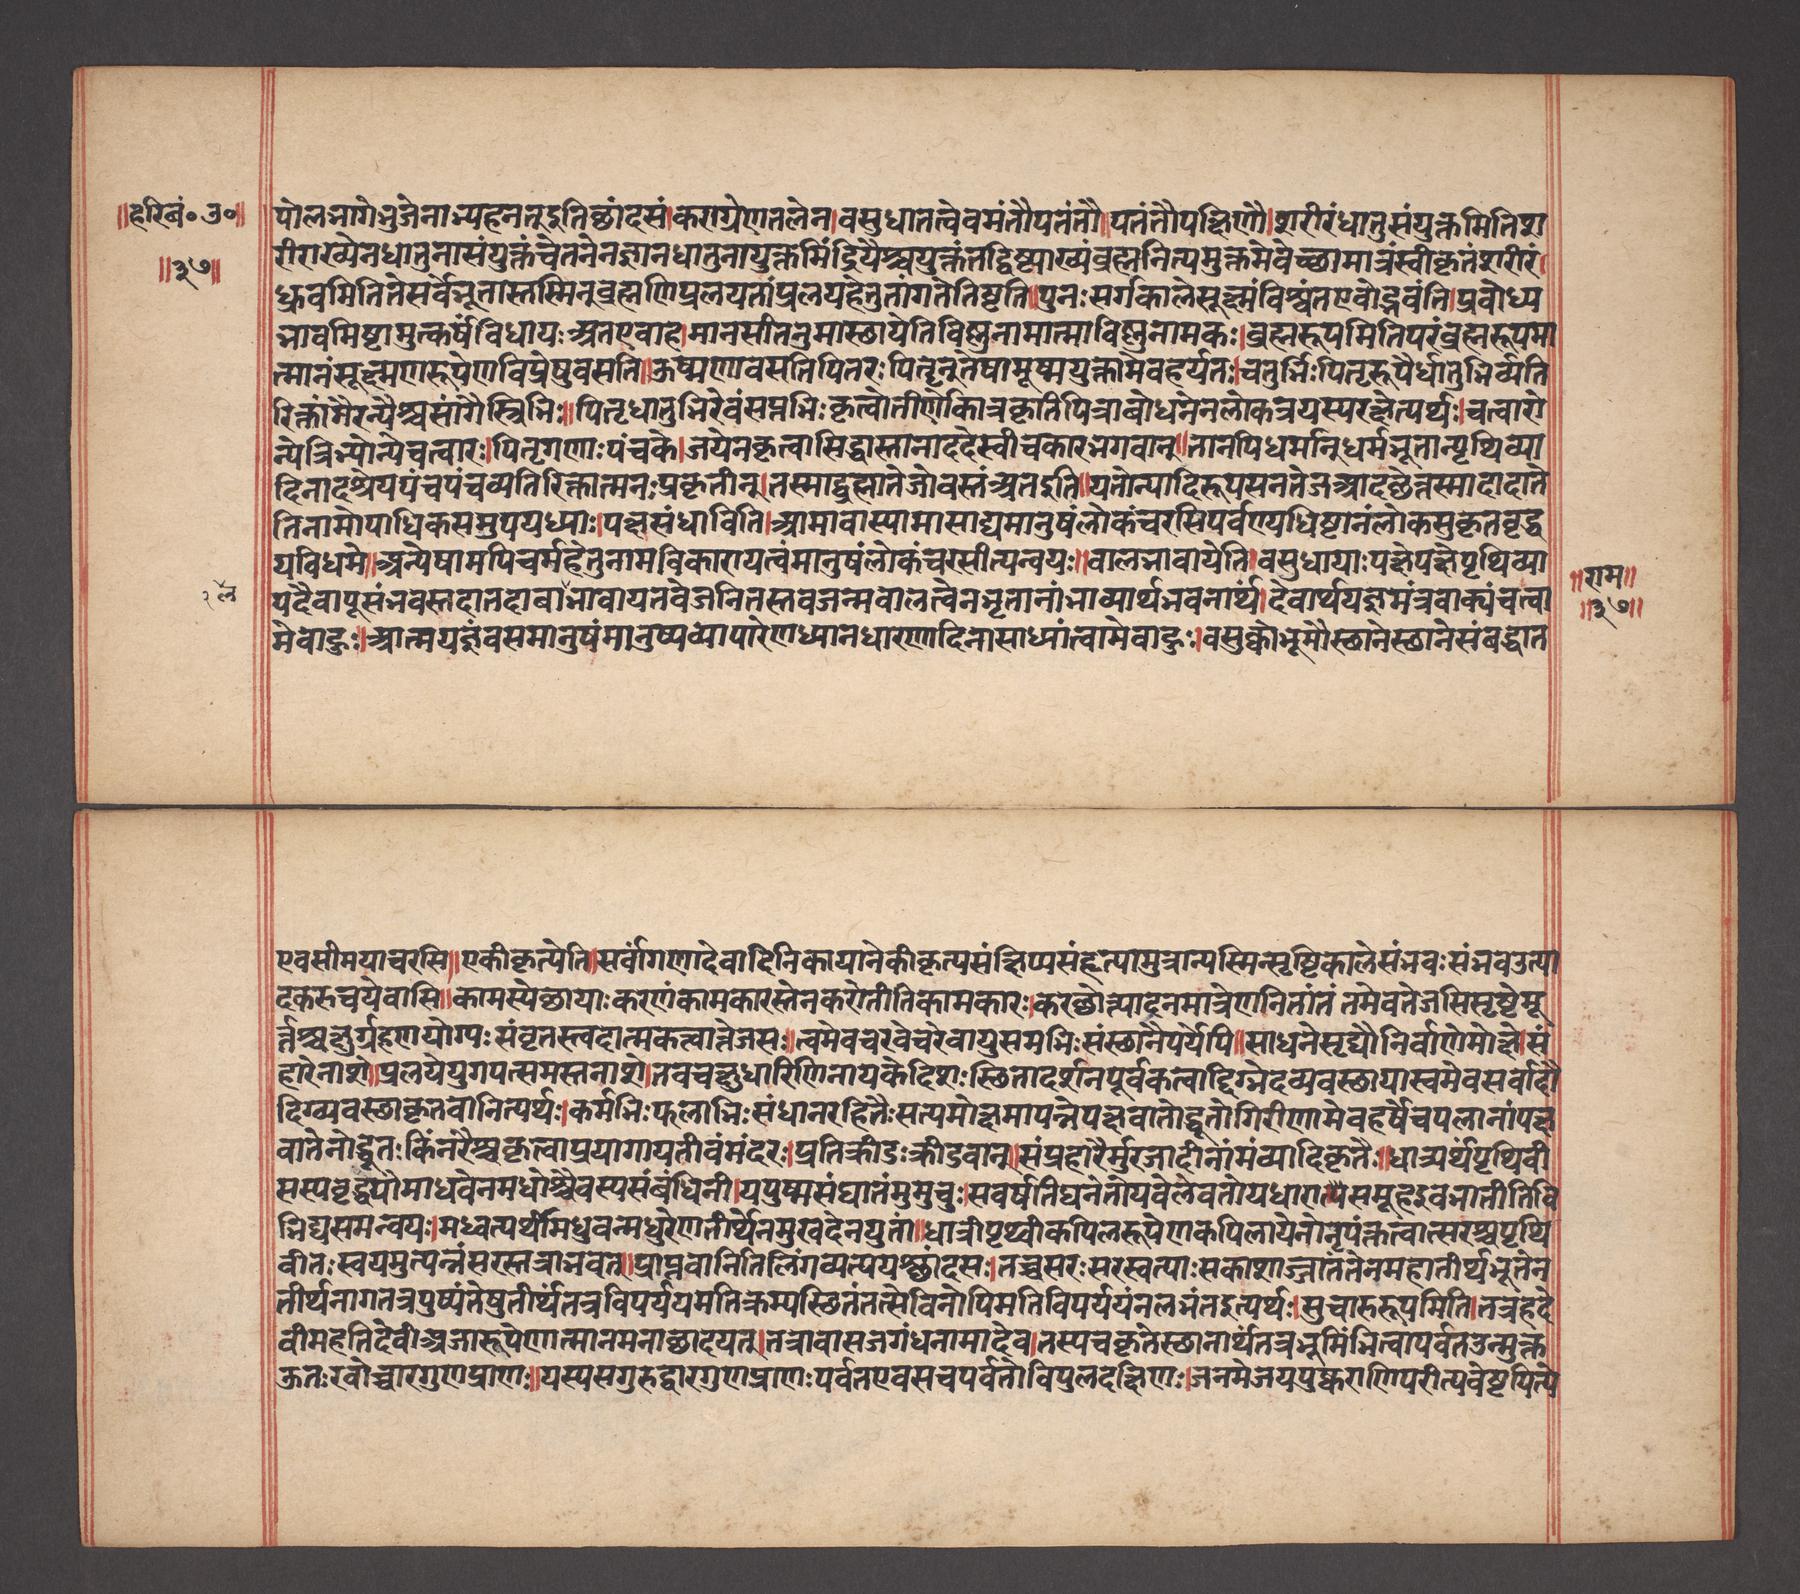 ॥हरिवं॰उ॰॥
॥३७॥
पोलभागेभुजेनाभ्यहनत्तुइतिछांदसं।कराग्रेणतलेन।वसुधातत्वेवमंतौपतंतौ।पतंतौपक्षिणौ।शरीरंधातुसंयुक्तमितिश
रीराख्येनधातुनासंयुक्तंचेतनेनज्ञानधातुनायुक्तमिंद्रियैश्चयुक्तंतद्विष्ण्वाख्यंब्रह्मनित्यमुक्तमेवेच्छामात्रंस्वीकृतंशरीरं।
ध्रुवमितितेसर्वेभूतास्तस्मिन्ब्रह्मणिप्रलयतांप्रलयहेतुतांगतेतिष्ठति॥पुनःसर्गकालेसूक्ष्मंविश्वंतएवोद्भवंति।प्रबोध्य
भावमिष्टामुत्कर्षंविधायःअतएवाह।मानसींतनुमास्छायेतिविष्णुनामात्माविष्णुनामकः।ब्रह्मरूपमितिपरंब्रह्मरूपमा
त्मानंसूक्ष्मणारूपेणविप्रेषुवसति॥ऊष्मणावसतिपितरःपितॄनुतेषामूष्मयुक्तामेवहर्यतः।चतुर्भिःपितृरूपैर्धातुभिर्व्यति
रिक्तांगैरन्यैश्चसांगैस्त्रिभिः॥पितृधातुभिरेवंसप्तभिःकृत्वोतीर्णकात्रकृतातिपित्राबोधनेनलोकत्रयस्परक्षेत्पर्थः।चत्वारो
न्येत्रिभ्योन्येचत्वारः।पितृगणाःपंचके।जयेनकृत्वासिद्धास्तानाददेस्वीचकारभगवान्॥तानपिधर्मानुधर्मभूतान्पृथिव्या
दिनादशेययंचपंचव्यतिरिक्तात्मनःप्रकृतीनु।तस्माद्बुह्मातेजोवस्तंअतइति॥यतोन्पादिरूपसनतेजआदछेत्तस्मादादाते
तिनामोपाधिकसमुपयध्याः।पक्षसंधाविति।आमावास्यामासाद्यमानुषंलोकंचरसिपर्वण्यधिष्टानंलोकसुकृतवृद्ध
यविधमे॥अन्येषामपिचर्महेतुनामविकारायत्वंमानुषंलोकंचरसीत्यन्वयः॥बालभावायेति।वसुधायाःपक्षेपक्षेपृथिव्या
यदैवापूसंभवस्तदातदाबाभावायतवेजनितस्तवजन्मबालत्वेनभृतानांभाव्यार्थभवनार्थं।देवार्थयज्ञमंत्रवाक्यंचत्वा
मेवाहुः।आत्मयज्ञंवसमानुषंमानुष्यव्यापारेणध्यानधारणादिनासाध्यांत्वामेवाहुः।वसुक्कोभूमौस्छानेस्छानेसंबद्धात
२ल
॥राम॥
॥३७॥
एवसीमयाचरसि॥एकीकृत्येति॥सर्वांगणादेवादिनिकायानेकीकृत्यसंक्षिप्यसंहृत्यामुत्रान्यस्मिन्सृष्टिकालेसंभवःसंभवउत्पा
दकरुचयेवासि॥कामस्येछायाःकरणंकामकारस्तेनकरोतीतिकामकारः।करछोत्पादनमात्रेणनितांतं तमेवतेजसिसृष्टेमू
र्त्तश्चक्षुर्ग्रहणयोग्यःसंवृतस्त्वदात्मकत्वात्तेजसः॥त्वमेवचखेचरेवायुसमभिःसंस्छानैपर्येपि॥साधनेसृद्यौनिर्वाणेमोक्षे।सं
हारेनाशे॥प्रलयेयुगपत्समस्तनाशे।तवचक्षुधारिणिनायकेदिशःस्छितादर्शनपूर्वकत्वाद्दिग्भेदव्यवस्छायास्वमेवसर्वादौ
दिग्व्यवस्छाकृतवानित्यर्थः।कर्मभिःफलाभिःसंधानरहितैःसत्यमोक्षमापन्नेपक्षवातोद्धूतोगिरीणामेवहर्षेचपलानांपक्ष
वातेनोद्धूतःकिंनरैश्चकृत्वाप्रयागायतीवंमंदरः।प्रतिक्रीडःक्रीडवान्॥संप्रहारैर्मुरजादीनांमंव्यादिकृतैः॥धात्र्यर्थपृथिवी
सस्यवृद्ध्यैपौमाधवेनमधोश्चैवस्यसंबंधिनी।यपुष्मसंघातंमुमुचुः।सवर्षातिघनेतोयवेलेवतोयधाराणपिसमूहइवभातीतिवि
भिद्यसमन्वयः।मध्वत्यर्थंमिधुवन्मधुरेणतीर्थेनमुखदेनयुतां॥धात्रीपृथ्वीकपिलरूपेणकपिलायेनोनृपंक्तत्वात्सरश्चपृथि
वीतःस्वयमुत्पन्नंसरस्तत्राभवत्॥प्राप्नवानितिलिंगव्यत्पयश्छांदसः।तच्चसरःसरस्वत्याःसकाशाज्जातंतेनमहातीर्थभूतेन
तीर्थनागतत्रपुष्पंतेषुतीर्थंतत्रविपर्ययमतिक्रम्पस्छितंतत्सेविनोपिमतिविपर्ययंनलभंतइत्पर्थः।सुचारुरूपमिति।तत्रहदे
वीमहतिदेवीअजारूपेणात्मानमनाछादयत्।तत्रावासजगंधनामादेव।तस्पचकृतेस्छानार्थंतत्रभूमिंभित्वापर्वतउन्मुक्त
ऊतःखोच्चारगुणप्राणः॥यस्पसगुरुद्वारगुणप्राणःपर्वतएवसचपर्वतोविपुलदक्षिणः।जनमेजयपुष्कराणिपरीत्पवेष्टयित्पे